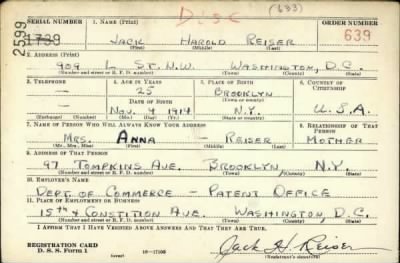 Disc (683)
SERIAL NUMBER 1. NAME (Print) ORDER NUMBER
2599 1739 JACK HAROLD REISER 639
(First) (Middle) (Last)
2. ADDRESS (Print)
909 L ST. N.W. WASHINGTON, D.C.
(Number and street or R. F. D. number) (Town) (County) (State)
3. TELEPHONE 4. AGE IN YEARS 5. PLACE OF BIRTH 6. COUNTRY OF CITIZENSHIP
— 25 BROOKLYN
DATE OF BIRTH (Town or county)
— Nov. 4 1914 N.Y. U.S.A.
(Exchange) (Number) (Mo.) (Day) (Yr.) (State or country)
7. NAME OF PERSON WHO WILL ALWAYS KNOW YOUR ADDRESS 8. RELATIONSHIP OF THAT PERSON
MRS. ANNA — REISER MOTHER
(Mr., Mrs., Miss) (First) (Middle) (Last)
9. ADDRESS OF THAT PERSON
97 TOMPKINS AVE. BROOKLYN N.Y.
(Number and street or R. F. D. number) (Town) (County) (State)
10. EMPLOYER'S NAME
DEPT. OF COMMERCE — PATENT OFFICE
11. PLACE OF EMPLOYMENT OR BUSINESS
15TH & CONSTITION AVE. WASHINGTON, D.C.
(Number and street or R. F. D. number) (Town) (County) (State)
I AFFIRM THAT I HAVE VERIFIED ABOVE ANSWERS AND THAT THEY ARE TRUE.
REGISTRATION CARD
D. S. S. Form 1 (over) 16—17105 Jack H. Reiser
(Registrant's signature)